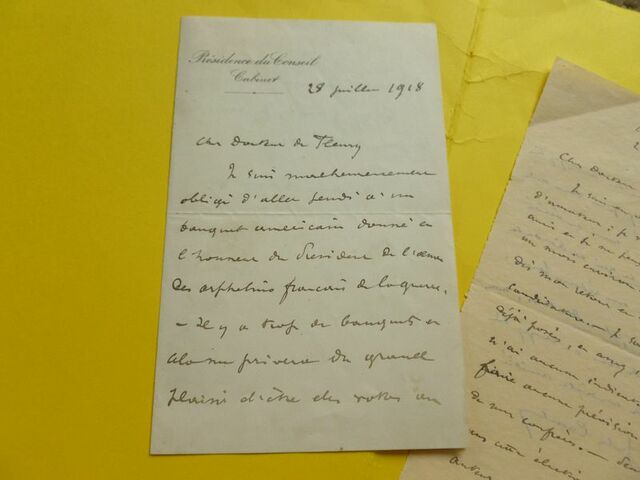 Présidence du Conseil
Cabinet
28 juillet 1918
Cher Docteur de Fleury
Je suis malheureusement
obligé d'aller jeudi à un
banquet américain donné en
l'honneur du Président de l'œuvre
des orphelins français de la guerre.
— Il y a trop de banquets et
cela me privera du grand
plaisir d'être des vôtres au
Cher Docteur
Je suis
d'
amis et je ne
un mois environ
dis mon retour en
candidature. Je
déjà posées, en
n'ai aucun
faire aucune prévision
de nos confrères. —
une